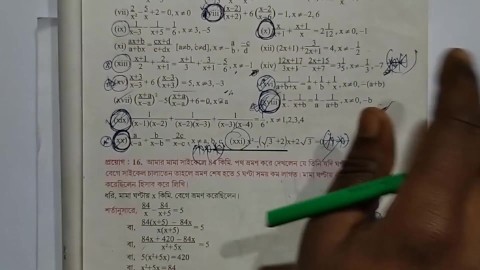 (vii) 2/x² - 5/x + 2 = 0, x ≠ 0 (viii) (x-2)/(x+2) + 6((x-2)/(x-6)) = 1, x ≠ -2, 6
(ix) 1/(x-3) - 1/(x+5) = 1/6, x ≠ 3, -5 (x) x/(x+1) + (x+1)/x = 2 1/12, x ≠ 0, -1
(xi) (ax+b)/(a+bx) = (cx+d)/(c+dx) [a≠b, c≠d], x ≠ -a/b, -c/d (xii) (2x+1) + 3/(2x+1) = 4, x ≠ -1/2
(xiii) (x+1)/2 + 2/(x+1) = (x+1)/3 + 3/(x+1) - 5/6, x ≠ -1 (xiv) (12x+17)/(3x+1) - (2x+15)/(x+7) = 3 1/5
(xv) (x+3)/(x-3) + 6((x-3)/(x+3)) = 5, x ≠ 3, -3 1/(a+b+x) = 1/a + 1/b + 1/x, x ≠ 0, -(a+b)
(xvii) ((x+a)/(x-a))² - 5((x+a)/(x-a)) + 6 = 0, x ≠ a (xviii) 1/x - 1/(x+b) = 1/a - 1/(a+b), x ≠ 0, -b
(xix) 1/((x-1)(x-2)) + 1/((x-2)(x-3)) + 1/((x-3)(x-4)) = 1/6, x ≠ 1,2,3,4
(xx) a/(x-a) + b/(x-b) = 2c/(x-c), x ≠ a, b, c (xxi) x² - (√3 + 2)x + 2√3 = 0
প্রয়োগ : 16. আমার মামা সাইকেলে 84 কিমি. পথ ভ্রমণ করে দেখলেন যে তিনি যদি
বেগে সাইকেল চালাতেন তাহলে ভ্রমণ শেষ হতে 5 ঘণ্টা সময় কম লাগত। মামা ঘণ্টায়
করেছিলেন হিসাব করে লিখি।
ধরি, মামা ঘণ্টায় x কিমি. বেগে ভ্রমণ করেছিলেন।
শর্তানুসারে, 84/x - 84/(x+5) = 5
বা, (84(x+5) - 84x)/(x(x+5)) = 5
বা, (84x + 420 - 84x)/(x²+5x) = 5
বা, 5(x²+5x) = 420
বা, x²+5x = 84